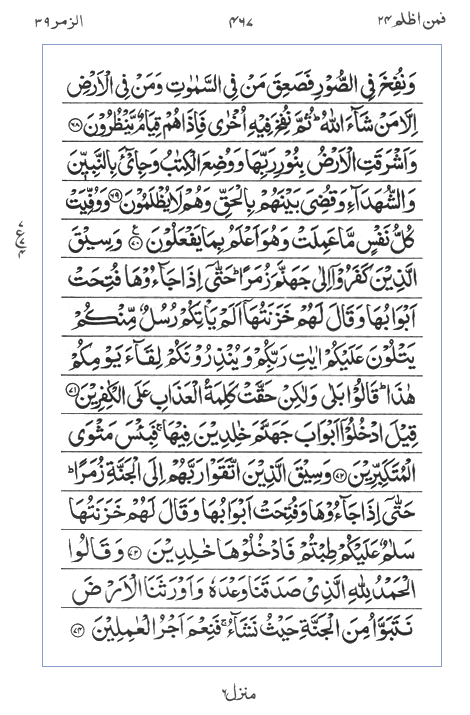 فمن اظلم ۲۴
۴۶۷
الزمر ۳۹
وَنُفِخَ فِى الصُّوْرِ فَصَعِقَ مَنْ فِى السَّمٰوٰتِ وَمَنْ فِى الْاَرْضِ
اِلَّا مَنْ شَآءَ اللّٰهُ ؕ ثُمَّ نُفِخَ فِيْهِ اُخْرٰى فَاِذَا هُمْ قِيَامٌ يَّنْظُرُوْنَ ﴿۶۸﴾
وَاَشْرَقَتِ الْاَرْضُ بِنُوْرِ رَبِّهَا وَوُضِعَ الْكِتٰبُ وَجِاىْٓءَ بِالنَّبِيّٖنَ
وَالشُّهَدَآءِ وَقُضِىَ بَيْنَهُمْ بِالْحَقِّ وَهُمْ لَا يُظْلَمُوْنَ ﴿۶۹﴾ وَوُفِّيَتْ
كُلُّ نَفْسٍ مَّا عَمِلَتْ وَهُوَ اَعْلَمُ بِمَا يَفْعَلُوْنَ ﴿۷۰﴾ ع وَسِيْقَ
الَّذِيْنَ كَفَرُوْۤا اِلٰى جَهَنَّمَ زُمَرًا ؕ حَتّٰٓى اِذَا جَآءُوْهَا فُتِحَتْ
اَبْوَابُهَا وَقَالَ لَهُمْ خَزَنَتُهَاۤ اَلَمْ يَاْتِكُمْ رُسُلٌ مِّنْكُمْ
يَتْلُوْنَ عَلَيْكُمْ اٰيٰتِ رَبِّكُمْ وَيُنْذِرُوْنَكُمْ لِقَآءَ يَوْمِكُمْ
هٰذَا ؕ قَالُوْا بَلٰى وَلٰكِنْ حَقَّتْ كَلِمَةُ الْعَذَابِ عَلَى الْكٰفِرِيْنَ ﴿۷۱﴾
قِيْلَ ادْخُلُوْۤا اَبْوَابَ جَهَنَّمَ خٰلِدِيْنَ فِيْهَا ۚ فَبِئْسَ مَثْوَى
الْمُتَكَبِّرِيْنَ ﴿۷۲﴾ وَسِيْقَ الَّذِيْنَ اتَّقَوْا رَبَّهُمْ اِلَى الْجَنَّةِ زُمَرًا ؕ
حَتّٰٓى اِذَا جَآءُوْهَا وَفُتِحَتْ اَبْوَابُهَا وَقَالَ لَهُمْ خَزَنَتُهَا
سَلٰمٌ عَلَيْكُمْ طِبْتُمْ فَادْخُلُوْهَا خٰلِدِيْنَ ﴿۷۳﴾ وَقَالُوا
الْحَمْدُ لِلّٰهِ الَّذِىْ صَدَقَنَا وَعْدَهٗ وَاَوْرَثَنَا الْاَرْضَ
نَتَبَوَّاُ مِنَ الْجَنَّةِ حَيْثُ نَشَآءُ ۚ فَنِعْمَ اَجْرُ الْعٰمِلِيْنَ ﴿۷۴﴾
منزل ۶